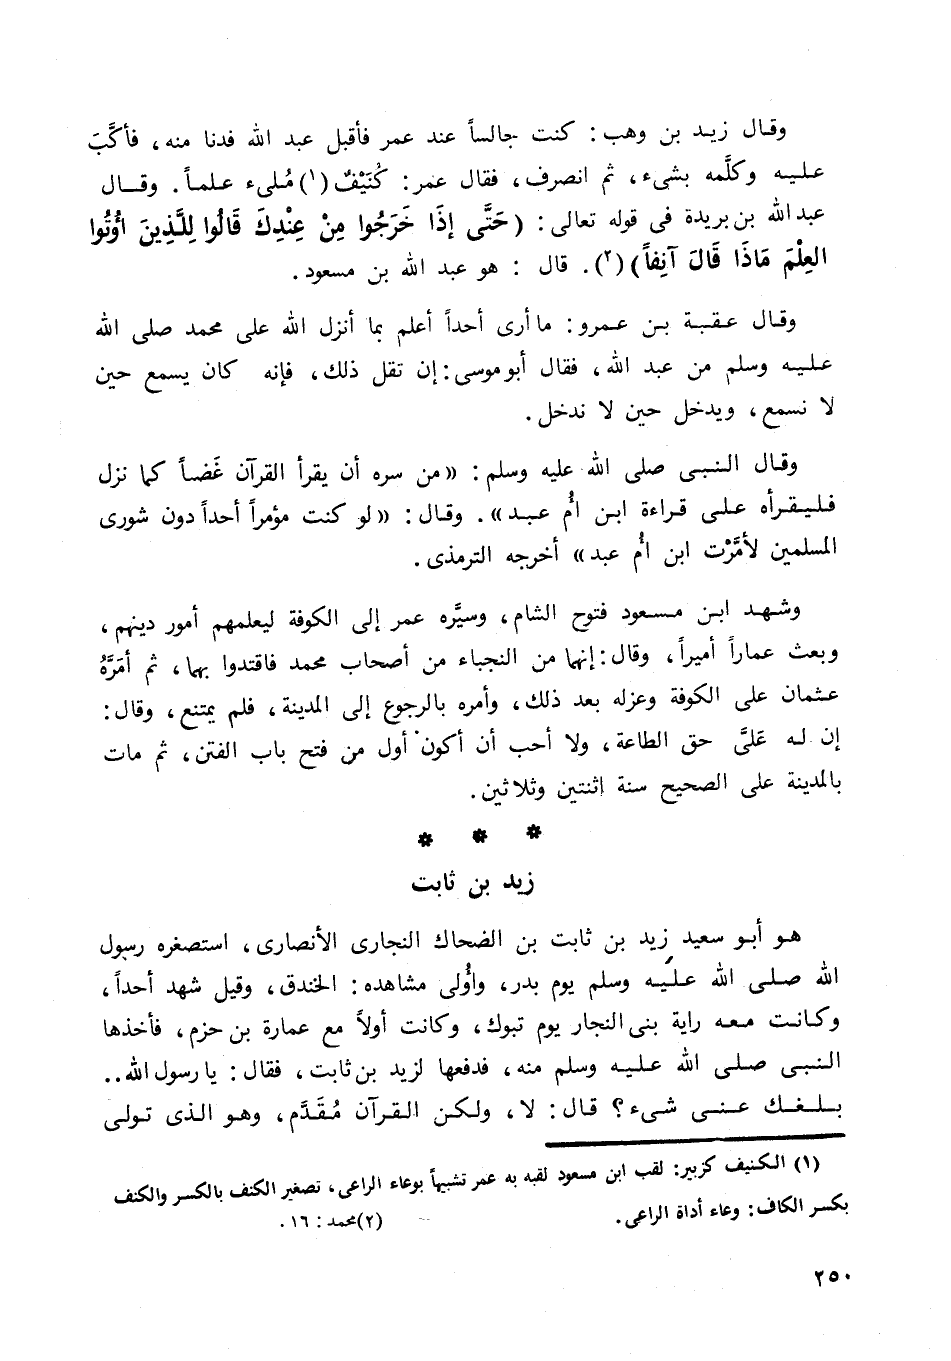 وقال زيد بن وهب : كنت جالساً عند عمر فأقبل عبد الله فدنا منه ، فأكَّبَ
عليه وكلَّمه بشىء ، ثم انصرف ، فقال عمر : كُنَيْفٌ (١) مُلىء علماً . وقال
عبد الله بن بريدة فى قوله تعالى : (حَتَّى إذَا خَرَجُوا مِنْ عِنْدِكَ قَالُوا لِلَّذِينَ أوُتُوا
العِلْمَ مَاذَا قَالَ آنِفاً) (٢) . قال : هو عبد الله بن مسعود .
وقال عقبة بن عمرو : ما أرى أحداً أعلم بما أنزل الله على محمد صلى الله
عليه وسلم من عبد الله ، فقال أبو موسى : إن تقل ذلك ، فإنه كان يسمع حين
لا نسمع ، ويدخل حين لا ندخل .
وقال النبى صلى الله عليه وسلم : «من سره أن يقرأ القرآن غَضاً كما نزل
فليقرأه على قراءة ابن أُم عبد» . وقال : «لو كنت مؤمراً أحداً دون شورى
المسلمين لأمَّرْت ابن أُم عبد» أخرجه الترمذى .
وشهد ابن مسعود فتوح الشام ، وسيَّره عمر إلى الكوفة ليعلمهم أمور دينهم ،
وبعث عماراً أميراً ، وقال : إنهما من النجباء من أصحاب محمد فاقتدوا بهما ، ثم أمَرَّهُ
عثمان على الكوفة وعزله بعد ذلك ، وأمره بالرجوع إلى المدينة ، فلم يمتنع ، وقال :
إن له عَلىَّ حق الطاعة ، ولا أحب أن أكون أول من فتح باب الفتن ، ثم مات
بالمدينة على الصحيح سنة اثنتين وثلاثين .
* * *
زيد بن ثابت
هو أبو سعيد زيد بن ثابت بن الضحاك النجارى الأنصارى ، استصغره رسول
الله صلى الله عليه وسلم يوم بدر ، وأُولى مشاهده : الخندق ، وقيل شهد أحداً ،
وكانت معه راية بنى النجار يوم تبوك ، وكانت أولاً مع عمارة بن حزم ، فأخذها
النبى صلى الله عليه وسلم منه ، فدفعها لزيد بن ثابت ، فقال : يا رسول الله ..
بلغك عنى شىء ؟ قال : لا ، ولكن القرآن مُقَدَّم ، وهو الذى تولى
(١) الكنيف كزبير : لقب ابن مسعود لقبه به عمر تشبيهاً بوعاء الراعى ، تصغير الكنف بالكسر والكنف
بكسر الكاف : وعاء أداة الراعى . (٢) محمد : ١٦ .
٢٥٠